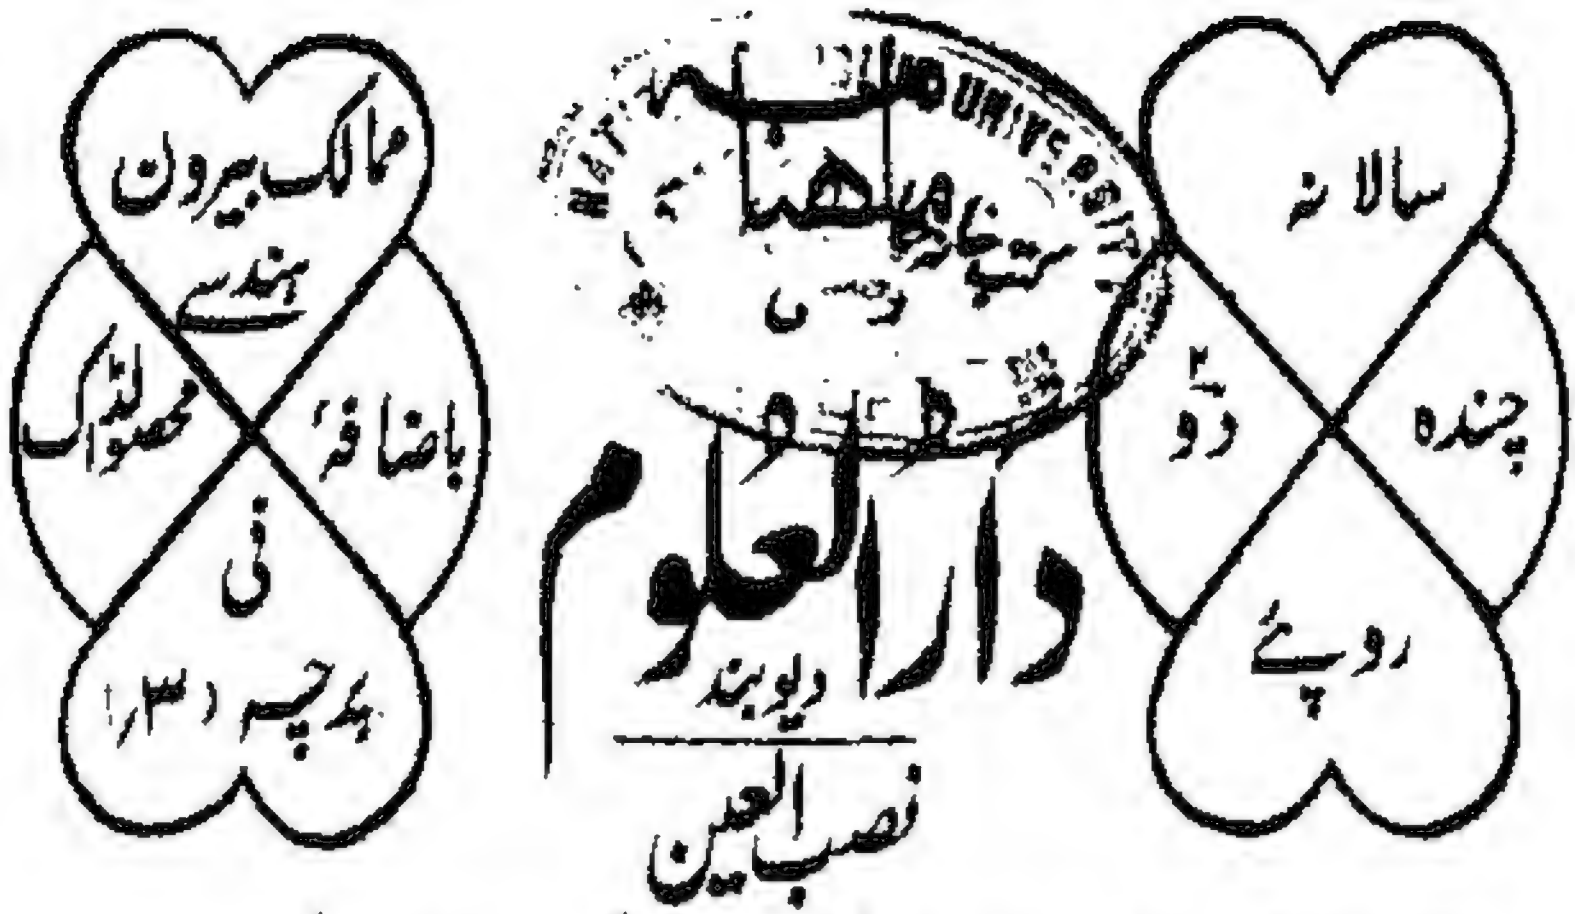 سالانہ
چندہ
دو
روپے
دارالعلوم
دیوبند
نصب العین
ممالک بیرون
ہند سے
باضافہٴ
محصولڈاک
فی
پرچہ ۳؍